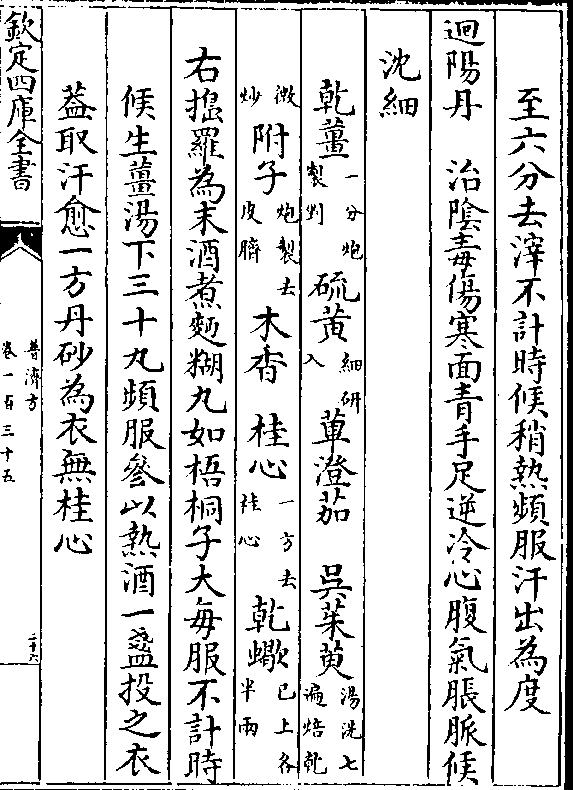 至六分去滓不計時候稍熱頻服汗出為度
迴陽丹　治陰毒傷寒面青手足逆冷心腹氣脹脈候
沈細
乾薑一分炮製剉　硫黃細研入　蓽澄茄　吳茱萸湯洗七遍焙乾
微炒　附子炮製去皮臍　木香　桂心一方去桂心　乾蠍已上各半兩
右搗羅為末酒煮麪糊丸如梧桐子大每服不計時
候生薑湯下三十丸頻服叅以熱酒一盞投之衣
葢取汗愈一方丹砂為衣無桂心
欽定四庫全書
普濟方
卷一百三十五
二十六